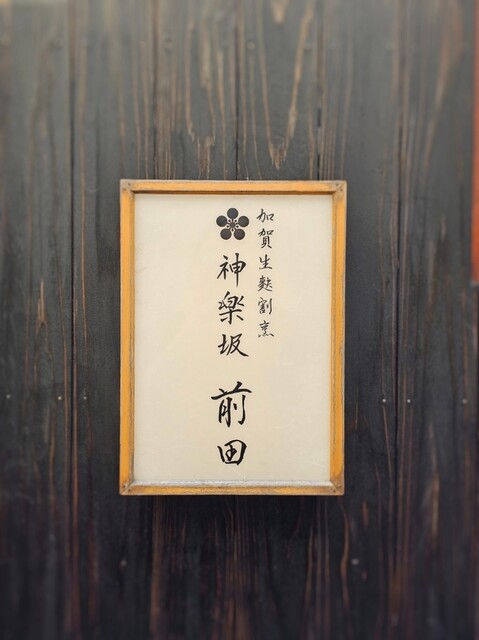 加賀生麩割烹
神楽坂 前田